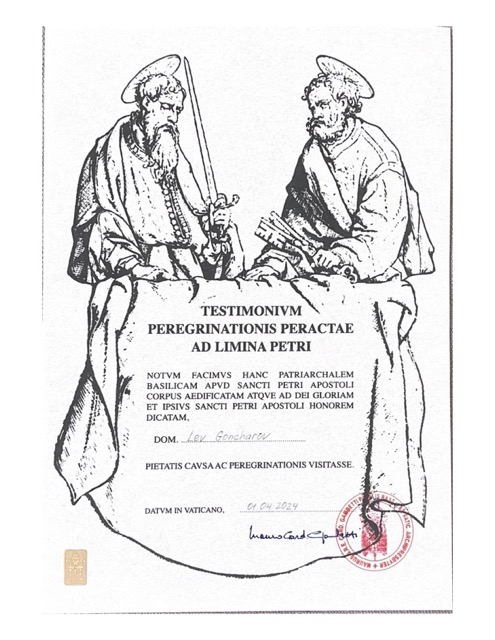 TESTIMONIVM
PEREGRINATIONIS PERACTAE
AD LIMINA PETRI
NOTVM FACIMVS HANC PATRIARCHALEM
BASILICAM APVD SANCTI PETRI APOSTOLI
CORPUS AEDIFICATAM ATQVE AD DEI GLORIAM
ET IPSIVS SANCTI PETRI APOSTOLI HONOREM
DICATAM,
DOM. Lev Goncharov
PIETATIS CAVSA AC PEREGRINATIONIS VISITASSE.
DATVM IN VATICANO, 01.04.2024
Mauro Card